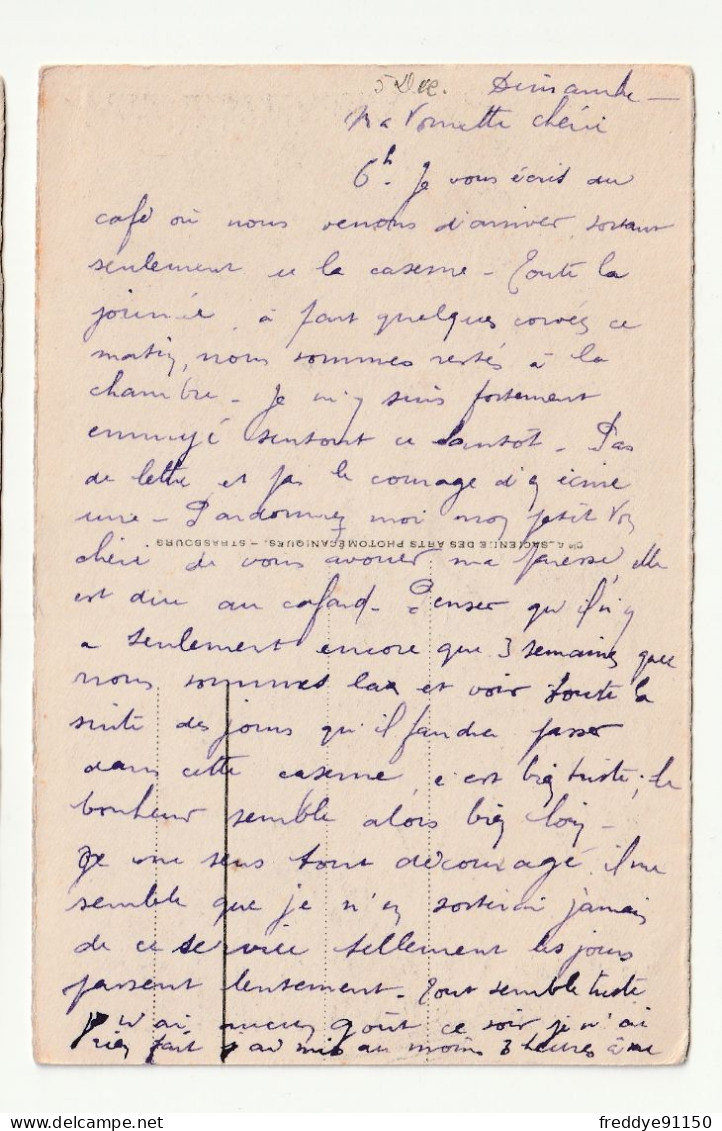 5 Dec. Dimanche
Ma Vonnette chérie
6h. Je vous écris du
café où nous venons d'arriver sortant
seulement de la caserne - Toute la
journée à part quelques corvées ce
matin, nous sommes restés à la
chambre. Je m'y suis fortement
ennuyé surtout ce tantôt - Pas
de lettre et pas le courage d'en écrire
une - Pardonnez moi mon petit Von
Cie ALSACIENNE DES ARTS PHOTOMÉCANIQUES. - STRASBOURG
chérie de vous avouer ma paresse elle
est due au cafard - Penser qu'il n'y
a seulement encore que 3 semaines que
nous sommes là et voir toute la
suite des jours qu'il faudra passer
dans cette caserne, c'est bien triste ; le
bonheur semble alors bien loin -
Je me sens tout découragé il me
semble que je n'en sortirai jamais
de ce service tellement les jours
passent lentement - Tout semble triste
je n'ai aucun goût ce soir je n'ai
rien fait j'ai mis au moins 3 heures à me
freddye91150